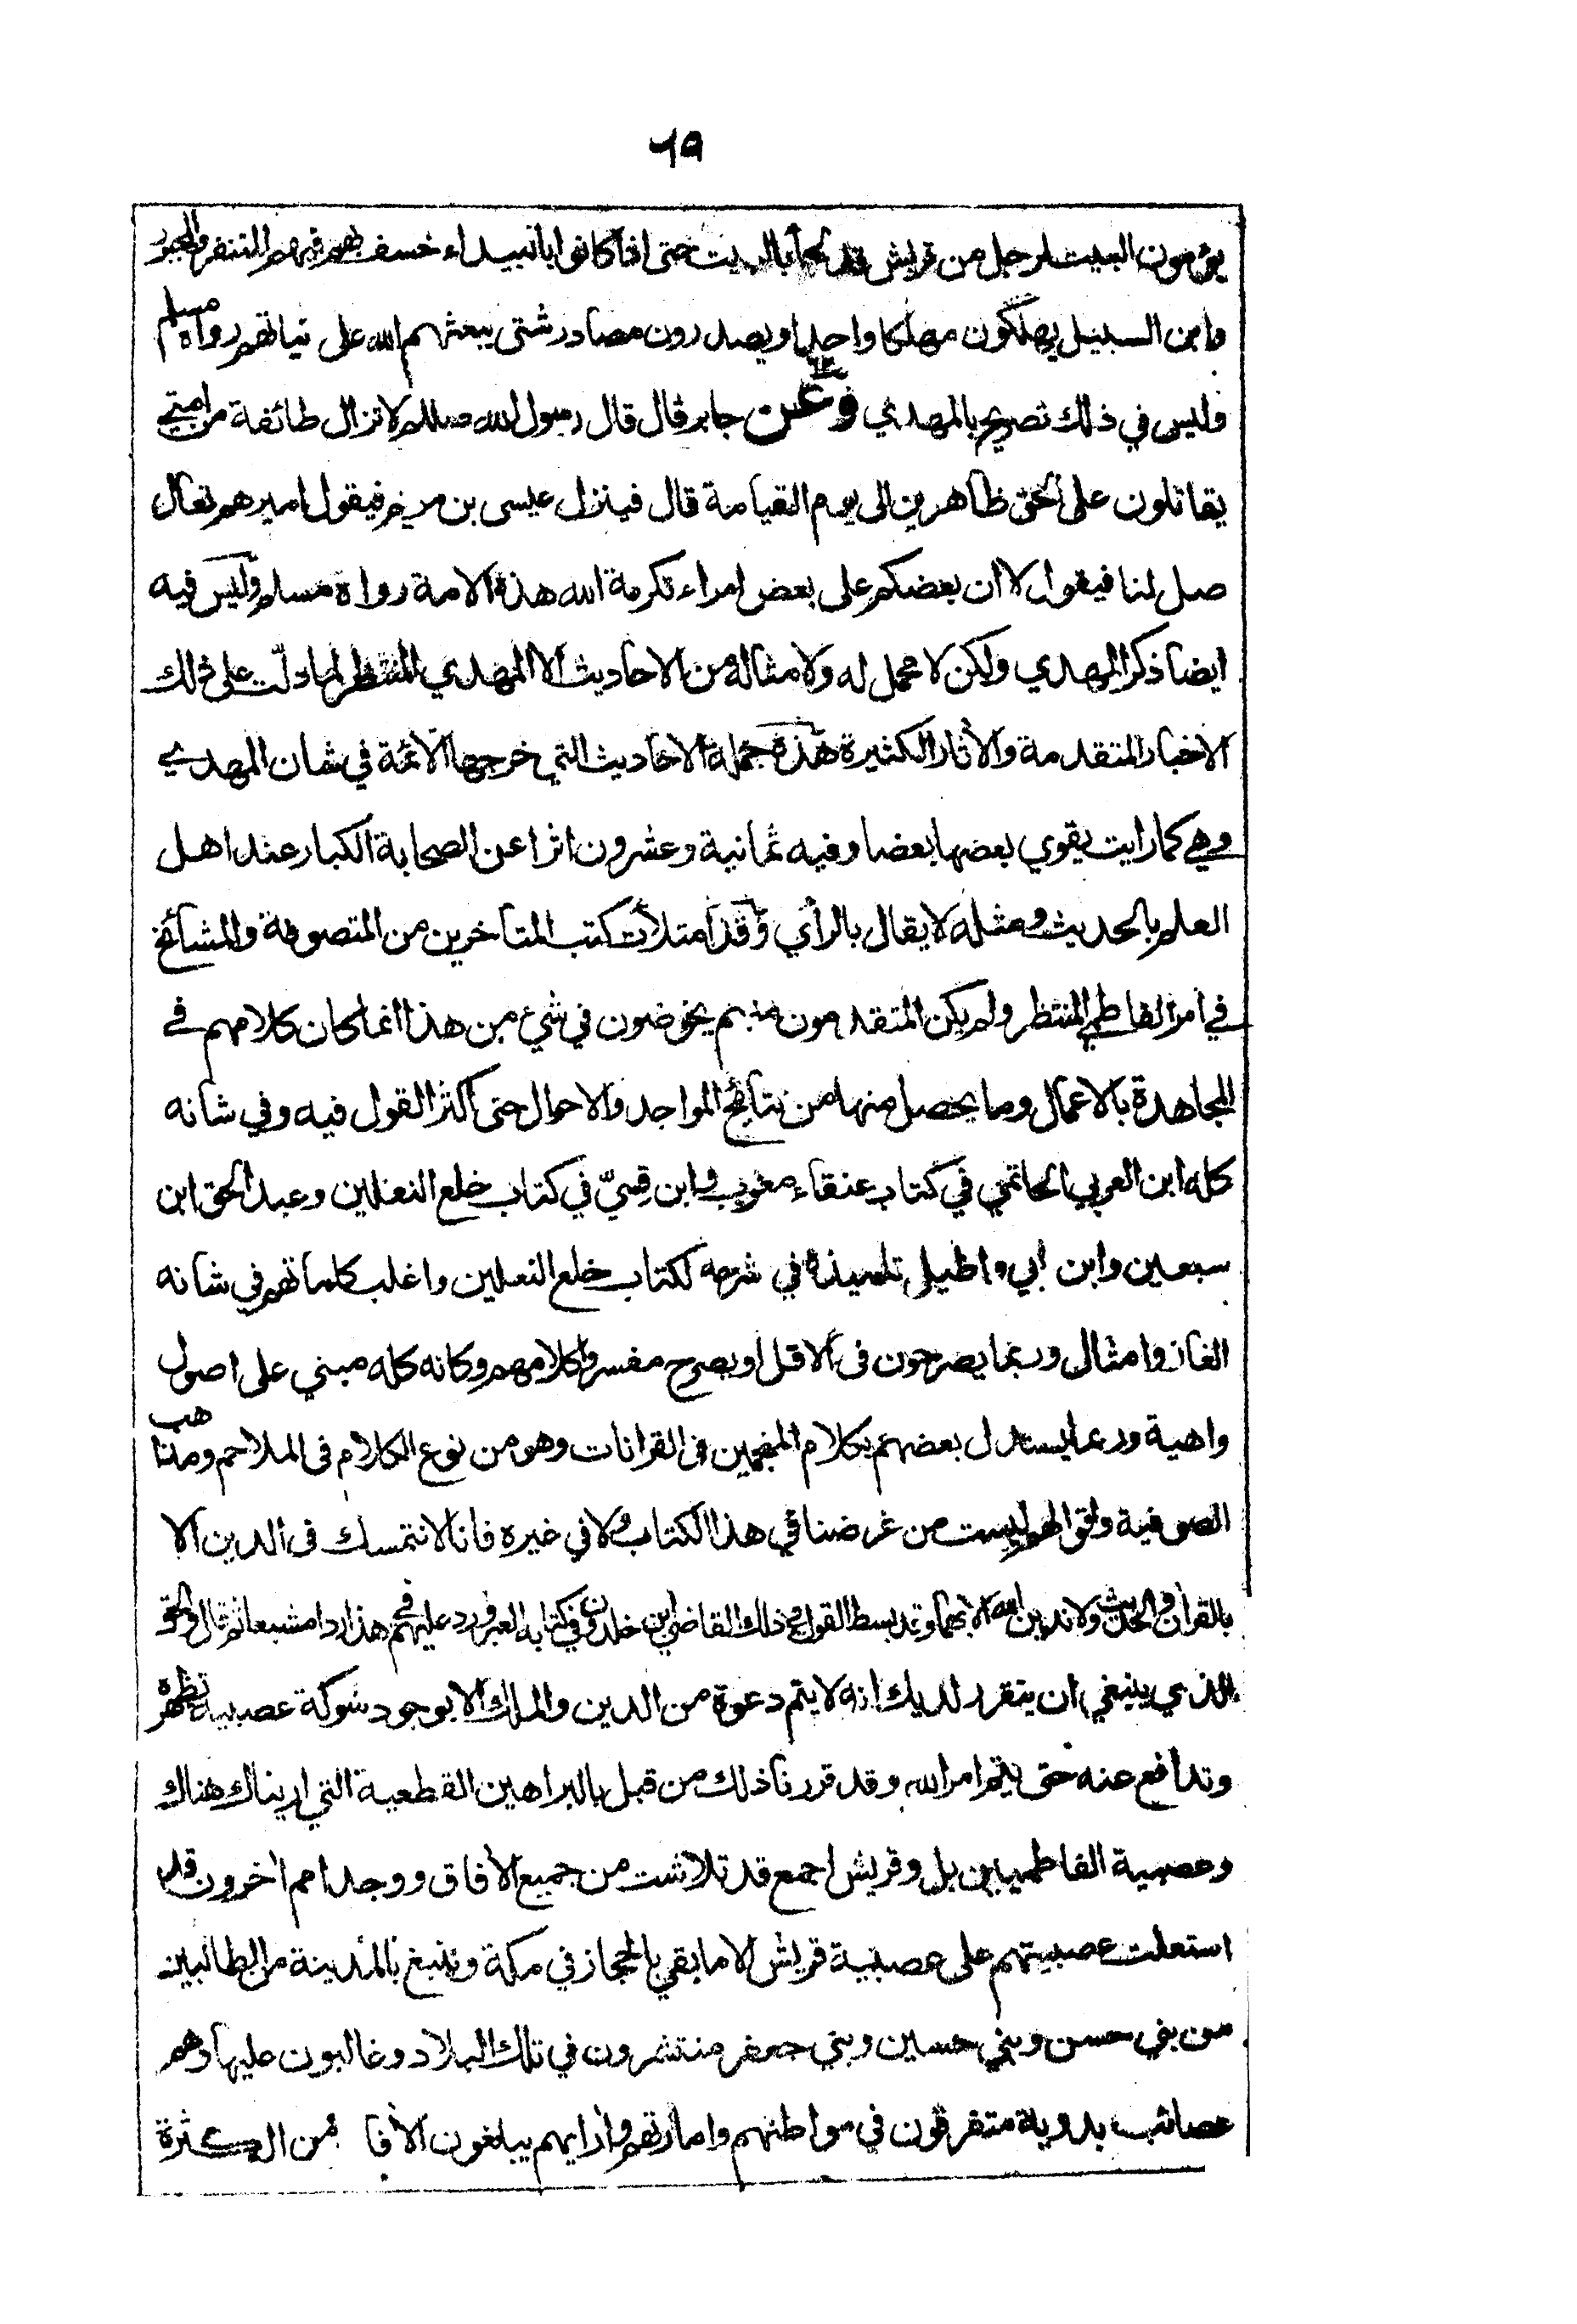 ٦٩
يؤمون البيت لرجل من قريش قد لجأ بالبيت حتى اذا كانوا بالبيداء خسف بهم فيهم المتنفر والمجبور
وابن السبيل يهلكون مهلكا واحدا ويصدرون مصادر شتى يبعثهم الله على نياتهم رواه مسلم
وليس في ذلك تصريح بالمهدي وعن جابر قال قال رسول الله صللم لا تزال طائفة من امتي
يقاتلون على الحق ظاهرين الى يوم القيامة قال فينزل عيسى بن مريم فيقول اميرهم تعال
صل لنا فيقول لا ان بعضكم على بعض امراء تكرمة الله هذه الامة رواه مسلم وليس فيه
ايضا ذكر المهدي ولكن لا محمل له ولامثاله من الاحاديث الا المهدي المنتظر لما دلت على ذلك
الاخبار المتقدمة والآثار الكثيرة فهذه جملة الاحاديث التي خرجها الائمة في شان المهدي
وهي كما رايت يقوي بعضها بعضا وفيه ثمانية وعشرون اثرا عن الصحابة الكبار عند اهل
العلم بالحديث ومثله لا يقال بالرأي وقد امتلأت كتب المتاخرين من المتصوفة والمشائخ
في امر الفاطمي المنتظر ولم يكن المتقدمون منهم يخوضون في شيء من هذا انما كان كلامهم في
المجاهدة بالاعمال وما يحصل منها من نتائج المواجد والاحوال حتى اكثر القول فيه وفي شانه
كله ابن العربي الحاتمي في كتاب عنقاء مغرب وابن قسيّ في كتاب خلع النعلين وعبد الحق ابن
سبعين وابن ابي واطيل تلميذه في شرحه لكتاب خلع النعلين واغلب كلماتهم في شانه
الغاز وامثال وربما يصرحون في الاقل او يصرح مفسروا كلامهم وكانه كله مبني على اصول
واهية وربما يستدل بعضهم بكلام المنجمين في القرانات وهو من نوع الكلام في الملاحم ومذاهب
الصوفية واقوالهم ليست من غرضنا في هذا الكتاب ولا في غيره فانا لا نتمسك في الدين الا
بالقرآن والحديث ولا ندين الله الا بهما وقد بسط القول في ذلك القاضي ابن خلدون في كتابه العبر ورد عليهم في هذا ردا مشبعا ثم قال والحق
الذي ينبغي ان يتقرر لديك انه لا يتم دعوة من الدين والملك الا بوجود شوكة عصبية تظهره
وتدافع عنه حتى يتم امر الله وقد قررنا ذلك من قبل بالبراهين القطعية التي اريناك هناك
وعصبية الفاطميين بل وقريش اجمع قد تلاشت من جميع الآفاق ووجد امم آخرون قد
استعلت عصبيتهم على عصبية قريش الا ما بقي بالحجاز في مكة وينبع بالمدينة من الطالبيين
من بني حسن وبني حسين وبني جعفر منتشرون في تلك البلاد وغالبون عليها وهم
عصائب بدوية متفرقون في مواطنهم وامارتهم وآرايهم يبلغون الآفا من الكثرة